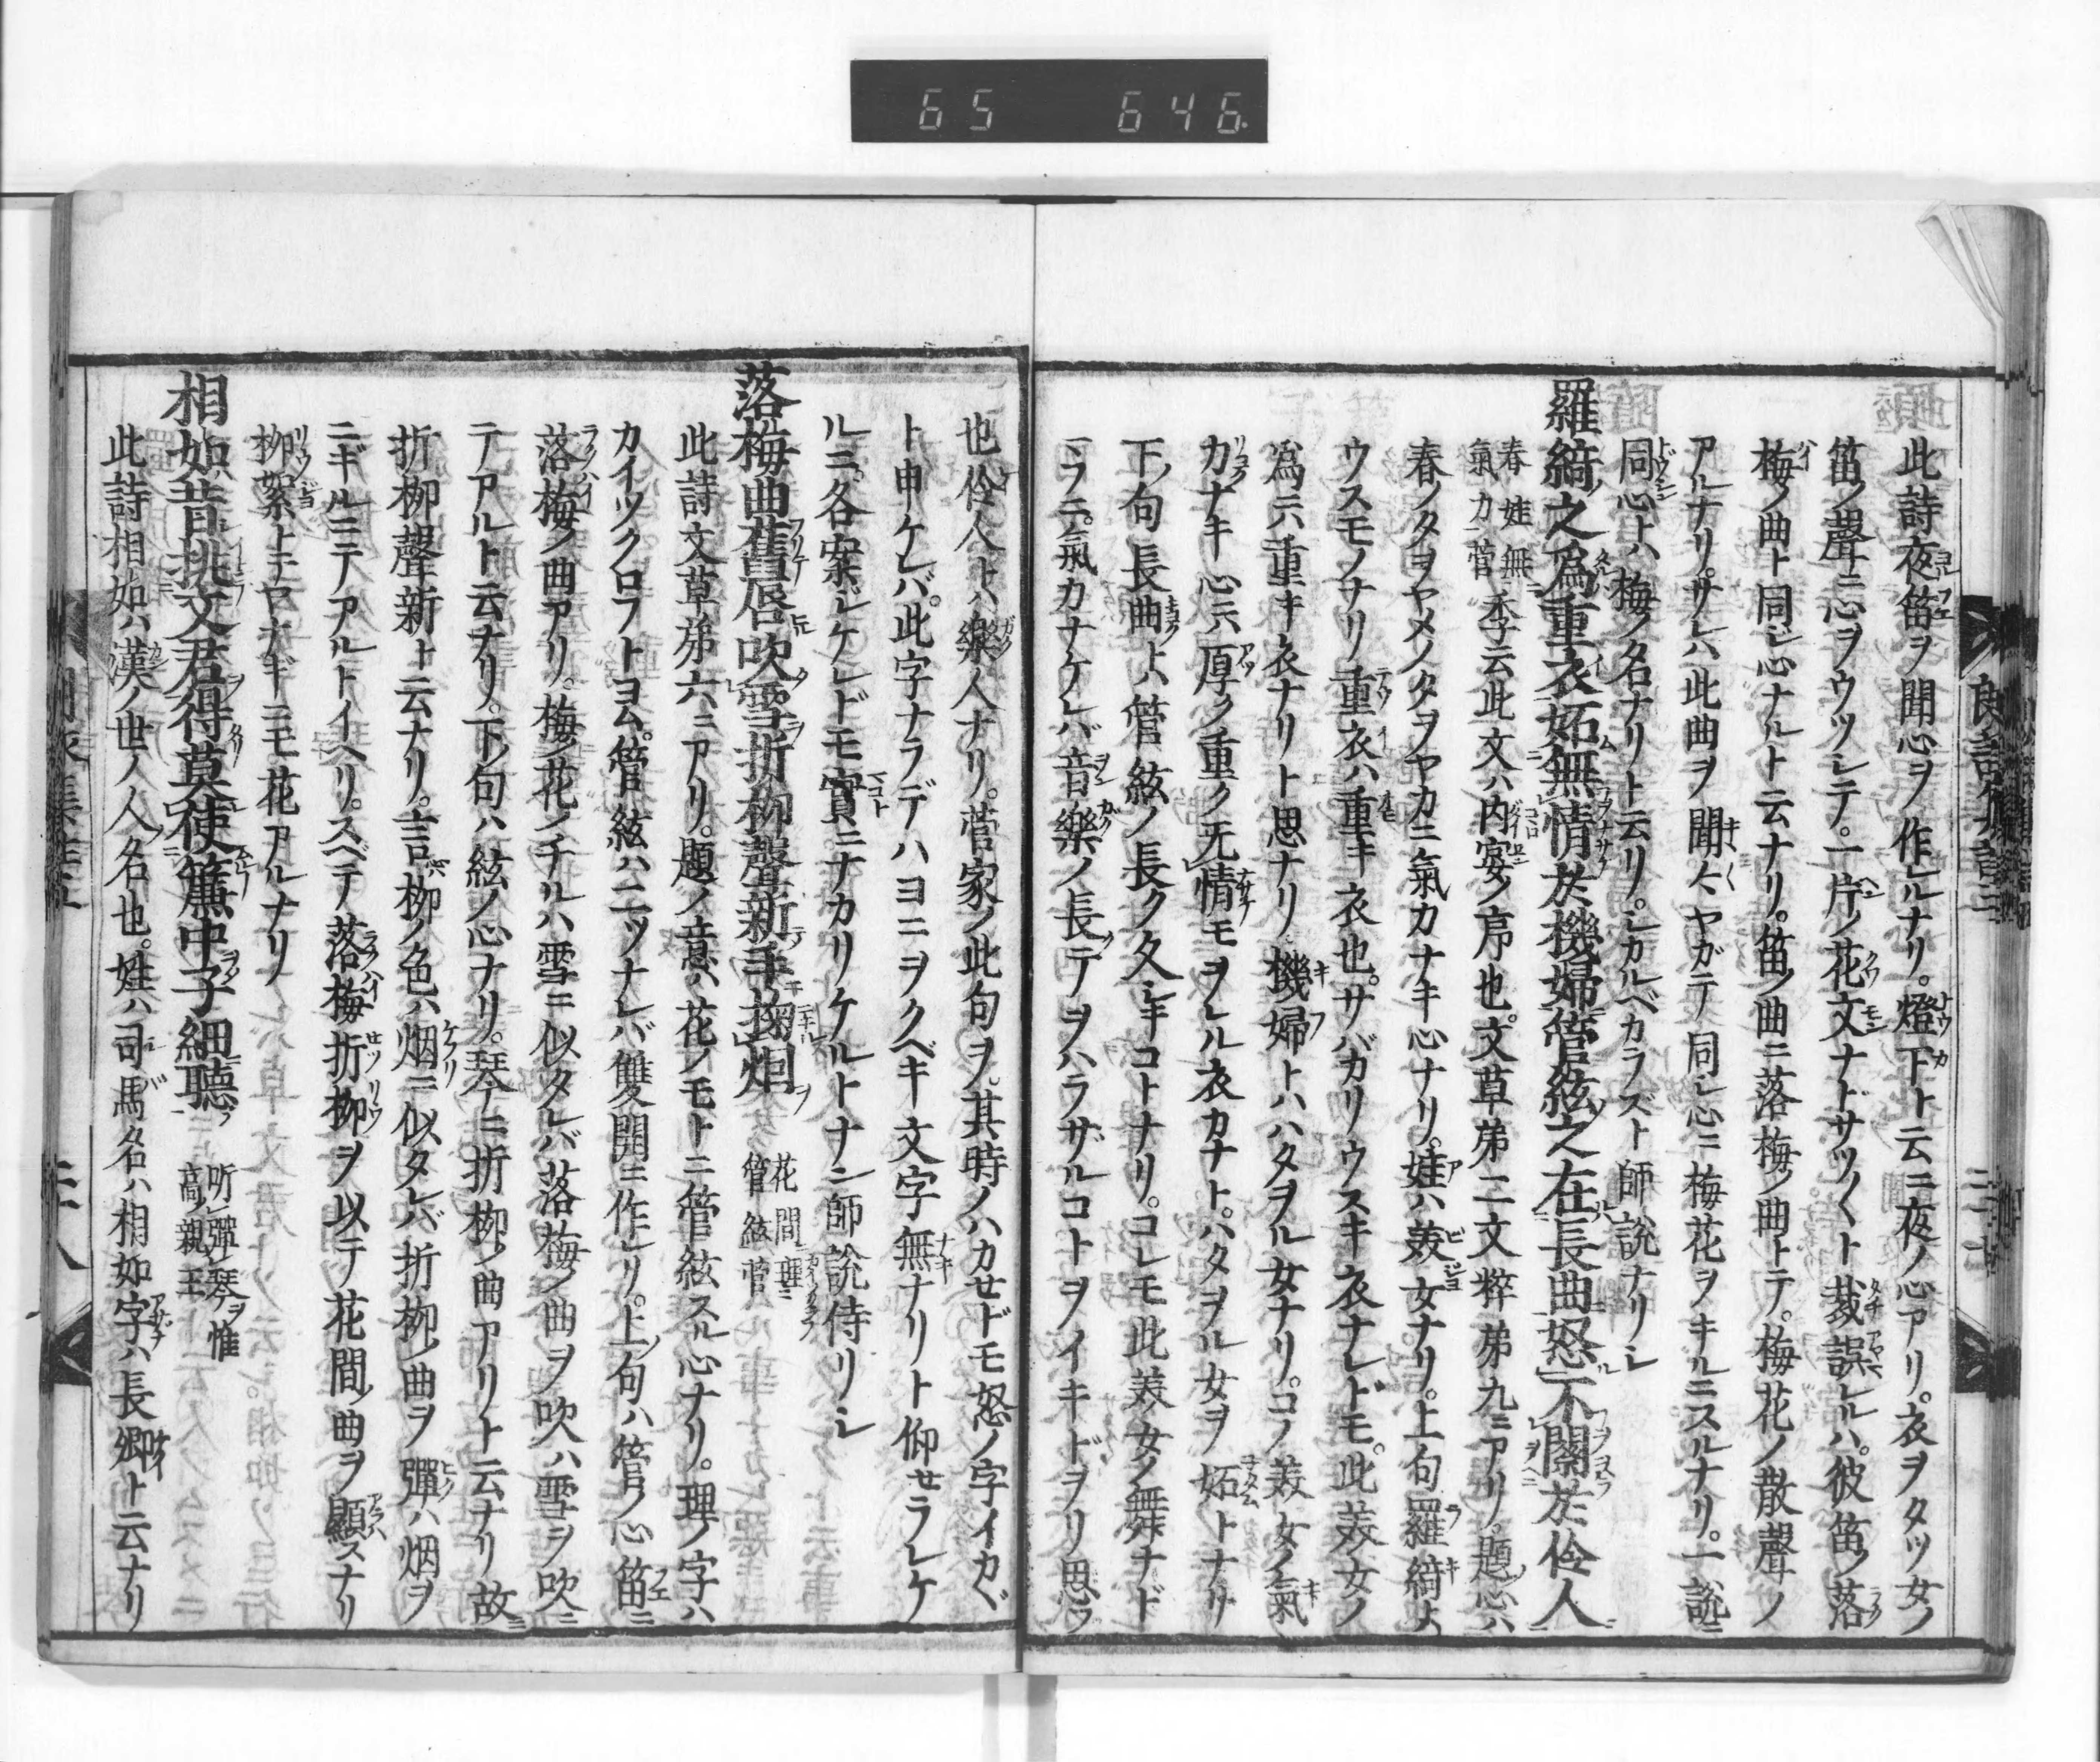 65 646
此詩夜笛ヲ聞心ヲ作ルナリ。燈下ト云ニ夜ノ心アリ。衣ヲタツ女ノ
笛ノ聲ニ心ヲウツシテ。一片ノ花文ナドサツ〱ト裁誤レルハ。彼笛ノ落
梅ノ曲ト同ジ心ナルト云ナリ。笛ノ曲ニ落梅ノ曲トテ。梅花ノ散聲ノ
アルナリ。サレハ此曲ヲ聞〻ヤガテ同シ心ニ梅花ヲキルニスルナリ。一說ニ
同心トハ梅ノ名ナリト云リ。シカルベカラズト師說ナリシ
羅綺之爲重衣妬無情於機婦管絃之在長曲怒不關於伶人
春娃無
氣力菅
季云此文ハ內宴ノ序也。文草第二文粹第九ニアリ。題心ハ
春ノタヲヤメノタヲヤカニ氣力ナキ心ナリ。娃ハ美女ナリ。上句羅綺ト
ウスモノナリ重衣ハ重キ衣也。サバカリウスキ衣ナレドモ。此美女ノ
爲ニハ重キ衣ナリト思ナリ機婦トハハタヲル女ナリ。コノ美女ノ氣
力ナキ心ニハ厚ク重ク无情モヲレル衣カナト。ハタヲル女ヲ妬トナリ
下ノ句長曲トハ管絃ノ長ク久シキコトナリ。コレモ此美女ノ舞ナド
ニラニ。氣力ナケレバ音樂ノ長テヲハラザルコトヲイキドヲリ思フ
朗詠集註三
二十七
也伶人トハ樂人ナリ。菅家ノ此句ヲ。其時ノハカセドモ怒ノ字イカヾ
ト申ケレバ。此字ナラデハヨニヲクベキ文字無ナリト仰セラレケ
ルニ。各案ジケレドモ實ニナカリケルトナン師說侍リシ
落梅曲舊唇吹雪折柳聲新手掬烟
花間理
管絃菅
此詩文草第六ニアリ。題ノ意ハ花ノモトニ管絃スル心ナリ。理ノ字ハ
カイツクロフトヨム。管絃ハ二ツナレバ雙關ニ作レリ。上ノ句ハ管ノ心笛ニ
落梅ノ曲アリ。梅ノ花ノチルハ雪ニ似タレバ落梅ノ曲ヲ吹ハ雪ヲ吹ニ
テアルト云ナリ。下ノ句ハ絃ノ心ナリ。琴ニ折柳ノ曲アリト云ナリ故ニ
折柳聲新ト云ナリ。言心ハ柳ノ色ハ烟ニ似タレバ折柳ノ曲ヲ彈ハ烟ヲ
ニギルニテアルトイヘリ。スベテ落梅折柳ヲ以テ花間ノ曲ヲ顯スナリ
柳絮トテヤナギニモ花アルナリ
相如昔挑文君得莫使簾中子細聽
听彈琴ヲ惟
高親王
此詩相如ハ漢ノ世ノ人ノ名也。姓ハ司馬名ハ相如字ハ長卿ト云ナリ